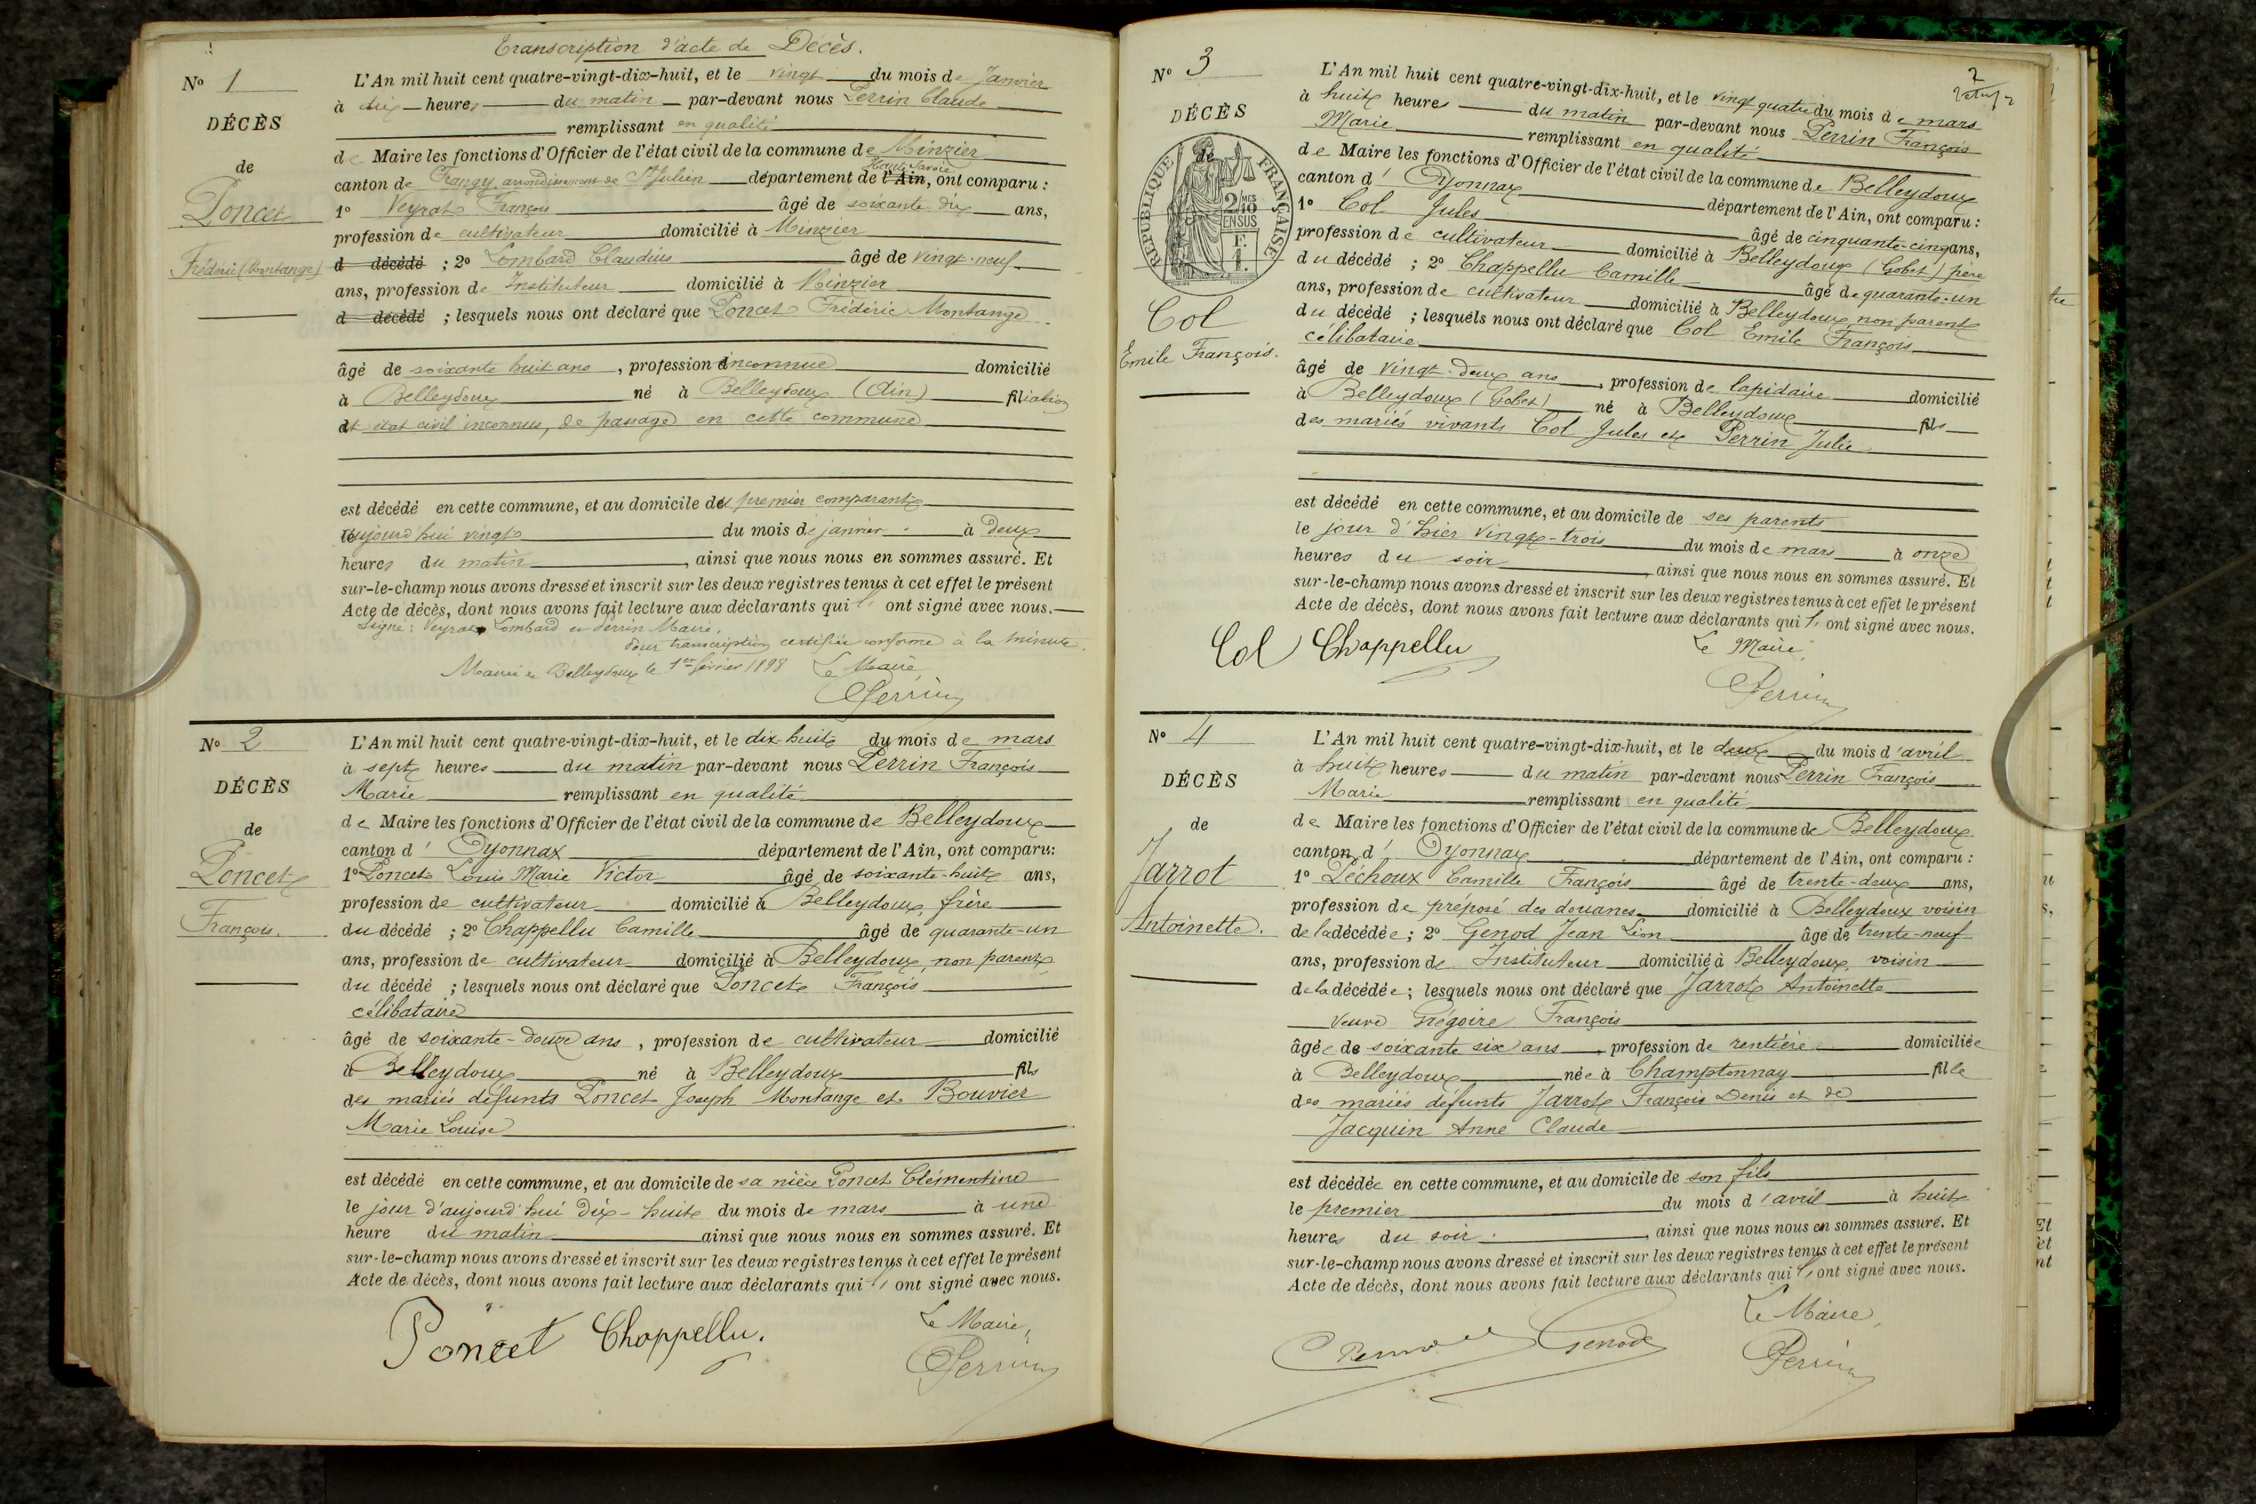 Transcription d'acte de Décès.
No 1
DÉCÈS
de
Poncet
Frédéric (Montange)
L'An mil huit cent quatre-vingt-dix-huit, et le vingt du mois de Janvier
à dix heures du matin par-devant nous Perrin Claude
remplissant en qualité
de Maire les fonctions d'Officier de l'état civil de la commune de Minzier
Haute Savoie
canton de Frangy, arrondissement de St Julien département de l'Ain, ont comparu :
1o Veyrat François âgé de soixante dix ans,
profession de cultivateur domicilié à Minzier
d décédé ; 2o Lombard Claudius âgé de vingt-neuf
ans, profession de Instituteur domicilié à Minzier
d décédé ; lesquels nous ont déclaré que Poncet Frédéric Montange
âgé de soixante huit ans, profession inconnue domicilié
à Belleydoux né à Belleydoux (Ain) filiation
et état civil inconnus, de passage en cette commune
est décédé en cette commune, et au domicile du premier comparant
aujourd'hui vingt du mois de janvier à deux
heures du matin, ainsi que nous nous en sommes assuré. Et
sur-le-champ nous avons dressé et inscrit sur les deux registres tenus à cet effet le présent
Acte de décès, dont nous avons fait lecture aux déclarants qui ont signé avec nous.
Signé : Veyrat, Lombard et Perrin Maire.
Pour transcription certifiée conforme à la minute.
Mairie de Belleydoux le 1er février 1898 Le Maire
Perrin
No 2
DÉCÈS
de
Poncet
François.
L'An mil huit cent quatre-vingt-dix-huit, et le dix-huit du mois de mars
à sept heures du matin par-devant nous Perrin François
Marie remplissant en qualité
de Maire les fonctions d'Officier de l'état civil de la commune de Belleydoux
canton d'Oyonnax département de l'Ain, ont comparu:
1o Poncet Louis Marie Victor âgé de soixante-huit ans,
profession de cultivateur domicilié à Belleydoux, frère
du décédé ; 2o Chappellu Camille âgé de quarante-un
ans, profession de cultivateur domicilié à Belleydoux, non parent
du décédé ; lesquels nous ont déclaré que Poncet François
célibataire
âgé de soixante-douze ans, profession de cultivateur domicilié
à Belleydoux né à Belleydoux fils
des mariés défunts Poncet Joseph Montange et Bouvier
Marie Louise
est décédé en cette commune, et au domicile de sa nièce Poncet Clémentine
le jour d'aujourd'hui dix-huit du mois de mars à une
heure du matin ainsi que nous nous en sommes assuré. Et
sur-le-champ nous avons dressé et inscrit sur les deux registres tenus à cet effet le présent
Acte de décès, dont nous avons fait lecture aux déclarants qui ont signé avec nous.
Poncet Chappellu. Le Maire,
Perrin
2
No 3
DÉCÈS
de
RÉPUBLIQUE FRANÇAISE
2 MES
10
EN SUS
Col
Emile François.
L'An mil huit cent quatre-vingt-dix-huit, et le vingt quatre du mois de mars
à huit heures du matin par-devant nous Perrin François
Marie remplissant en qualité
de Maire les fonctions d'Officier de l'état civil de la commune de Belleydoux
canton d'Oyonnax département de l'Ain, ont comparu :
1o Col Jules âgé de cinquante-cinq ans,
profession de cultivateur domicilié à Belleydoux (Gobet) père
du décédé ; 2o Chappellu Camille âgé de quarante-un
ans, profession de cultivateur domicilié à Belleydoux, non parent
du décédé ; lesquels nous ont déclaré que Col Emile François
célibataire
âgé de vingt-deux ans, profession de lapidaire domicilié
à Belleydoux (Gobet) né à Belleydoux fils
des mariés vivants Col Jules et Perrin Julie
est décédé en cette commune, et au domicile de ses parents
le jour d'hier vingt-trois du mois de mars à onze
heures du soir, ainsi que nous nous en sommes assuré. Et
sur-le-champ nous avons dressé et inscrit sur les deux registres tenus à cet effet le présent
Acte de décès, dont nous avons fait lecture aux déclarants qui ont signé avec nous.
Col Chappellu Le Maire,
Perrin
No 4
DÉCÈS
de
Jarrot
Antoinette.
L'An mil huit cent quatre-vingt-dix-huit, et le deux du mois d'avril
à huit heures du matin par-devant nous Perrin François
Marie remplissant en qualité
de Maire les fonctions d'Officier de l'état civil de la commune de Belleydoux
canton d'Oyonnax département de l'Ain, ont comparu :
1o Péchoux Camille François âgé de trente-deux ans,
profession de préposé des douanes domicilié à Belleydoux voisin
de la décédée ; 2o Genod Jean Léon âgé de trente-neuf
ans, profession de Instituteur domicilié à Belleydoux, voisin
de la décédée ; lesquels nous ont déclaré que Jarrot Antoinette
veuve Grégoire François
âgée de soixante six ans, profession de rentière domiciliée
à Belleydoux née à Champtonnay fille
des mariés défunts Jarrot François Denis et de
Jacquin Anne Claude
est décédée en cette commune, et au domicile de son fils
le premier du mois d'avril à huit
heures du soir, ainsi que nous nous en sommes assuré. Et
sur-le-champ nous avons dressé et inscrit sur les deux registres tenus à cet effet le présent
Acte de décès, dont nous avons fait lecture aux déclarants qui ont signé avec nous.
Genod Le Maire,
Perrin